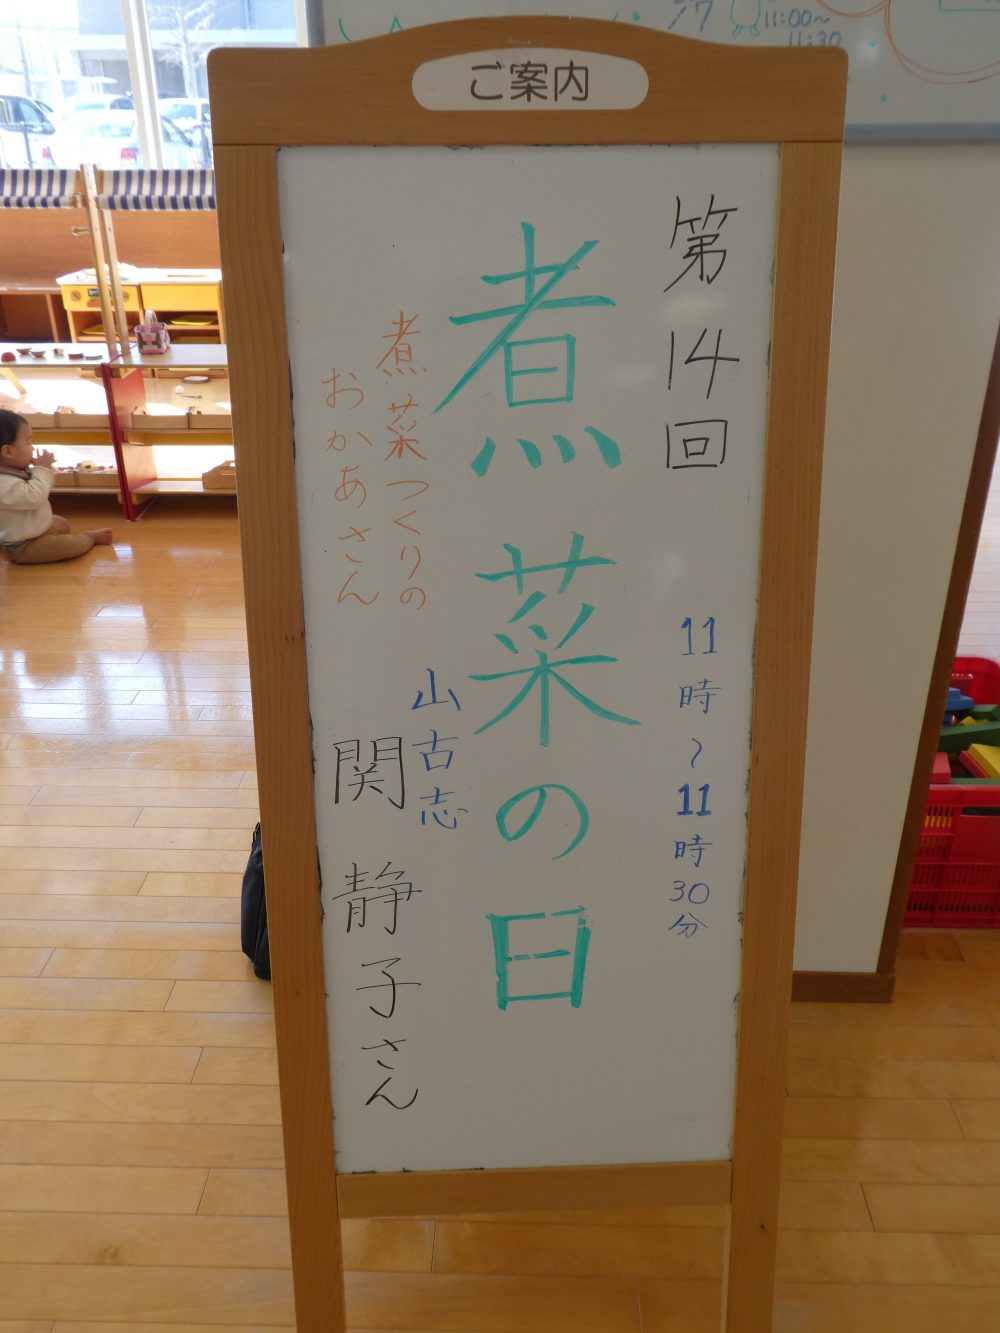 11:00〜
11:30
ご案内
第14回
11時〜11時30分
煮菜の日
煮菜つくりの
おかあさん
山古志
関静子さん